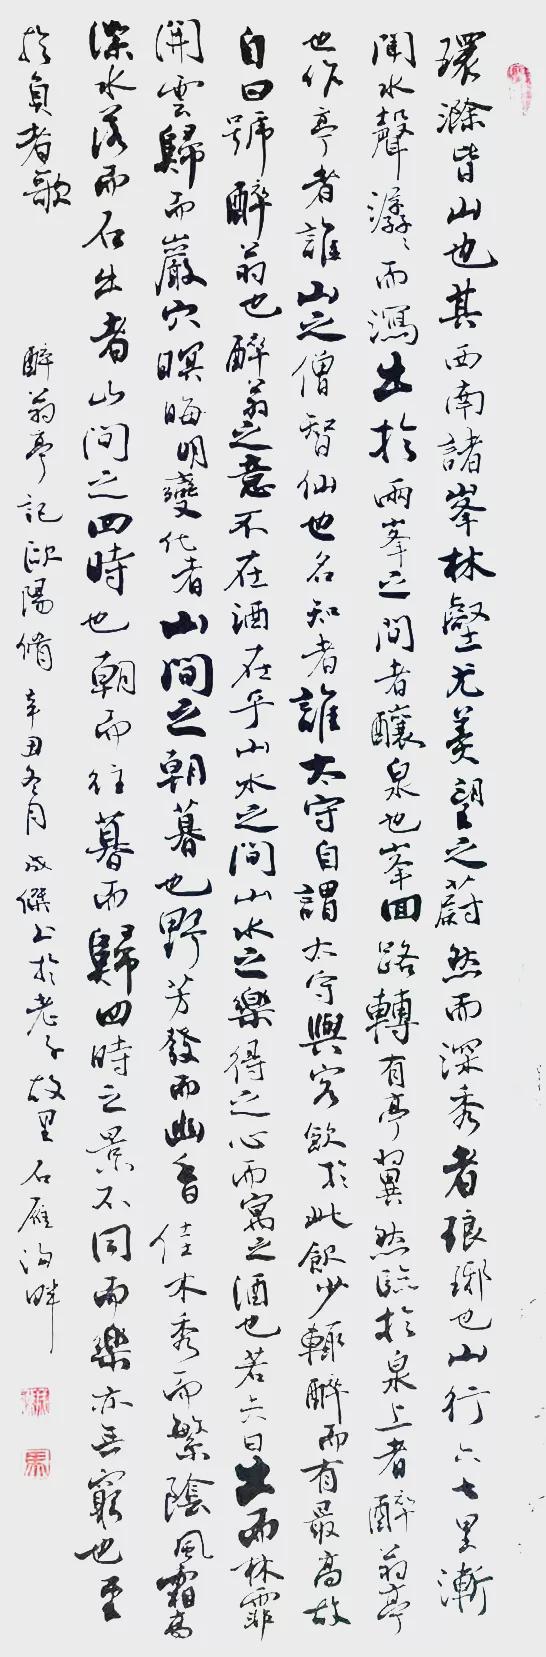 環滁皆山也其西南諸峯林壑尤美望之蔚然而深秀者琅琊也山行六七里漸
聞水聲潺〻而瀉出於兩峯之間者釀泉也峯回路轉有亭翼然臨於泉上者醉翁亭
也作亭者誰山之僧智仙也名知者誰太守自謂太守與客飲於此飲少輒醉而有最高故
自曰號醉翁也醉翁之意不在酒在乎山水之間山水之樂得之心而寓之酒也若夫日出而林霏
開雲歸而巖穴暝晦明變化者山間之朝暮也野芳發而幽香佳木秀而繁陰風霜高
潔水落而石出者山間之四時也朝而往暮而歸四時之景不同而樂亦無窮也至
於負者歌
醉翁亭記歐陽脩 辛丑冬月 书於老子故里石雁畔